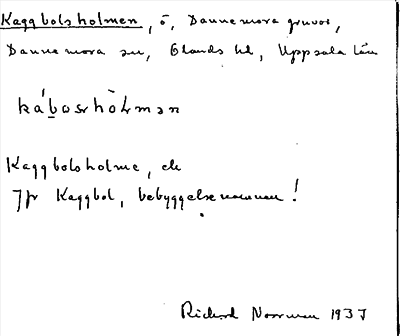 Kaggbolsholmen, ö, Dannemora gruvor,
Dannemora sn, Olands hd, Uppsala län
kábosrhòlmən
Kaggbolsholme, ek
Jfr Kaggbol, bebyggelsenamnen!
Richard Norrman 1937